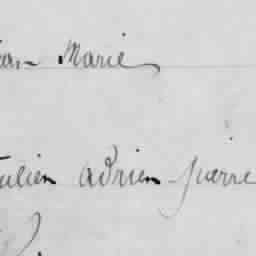 Jean-Marie
Julien Adrien Pierre